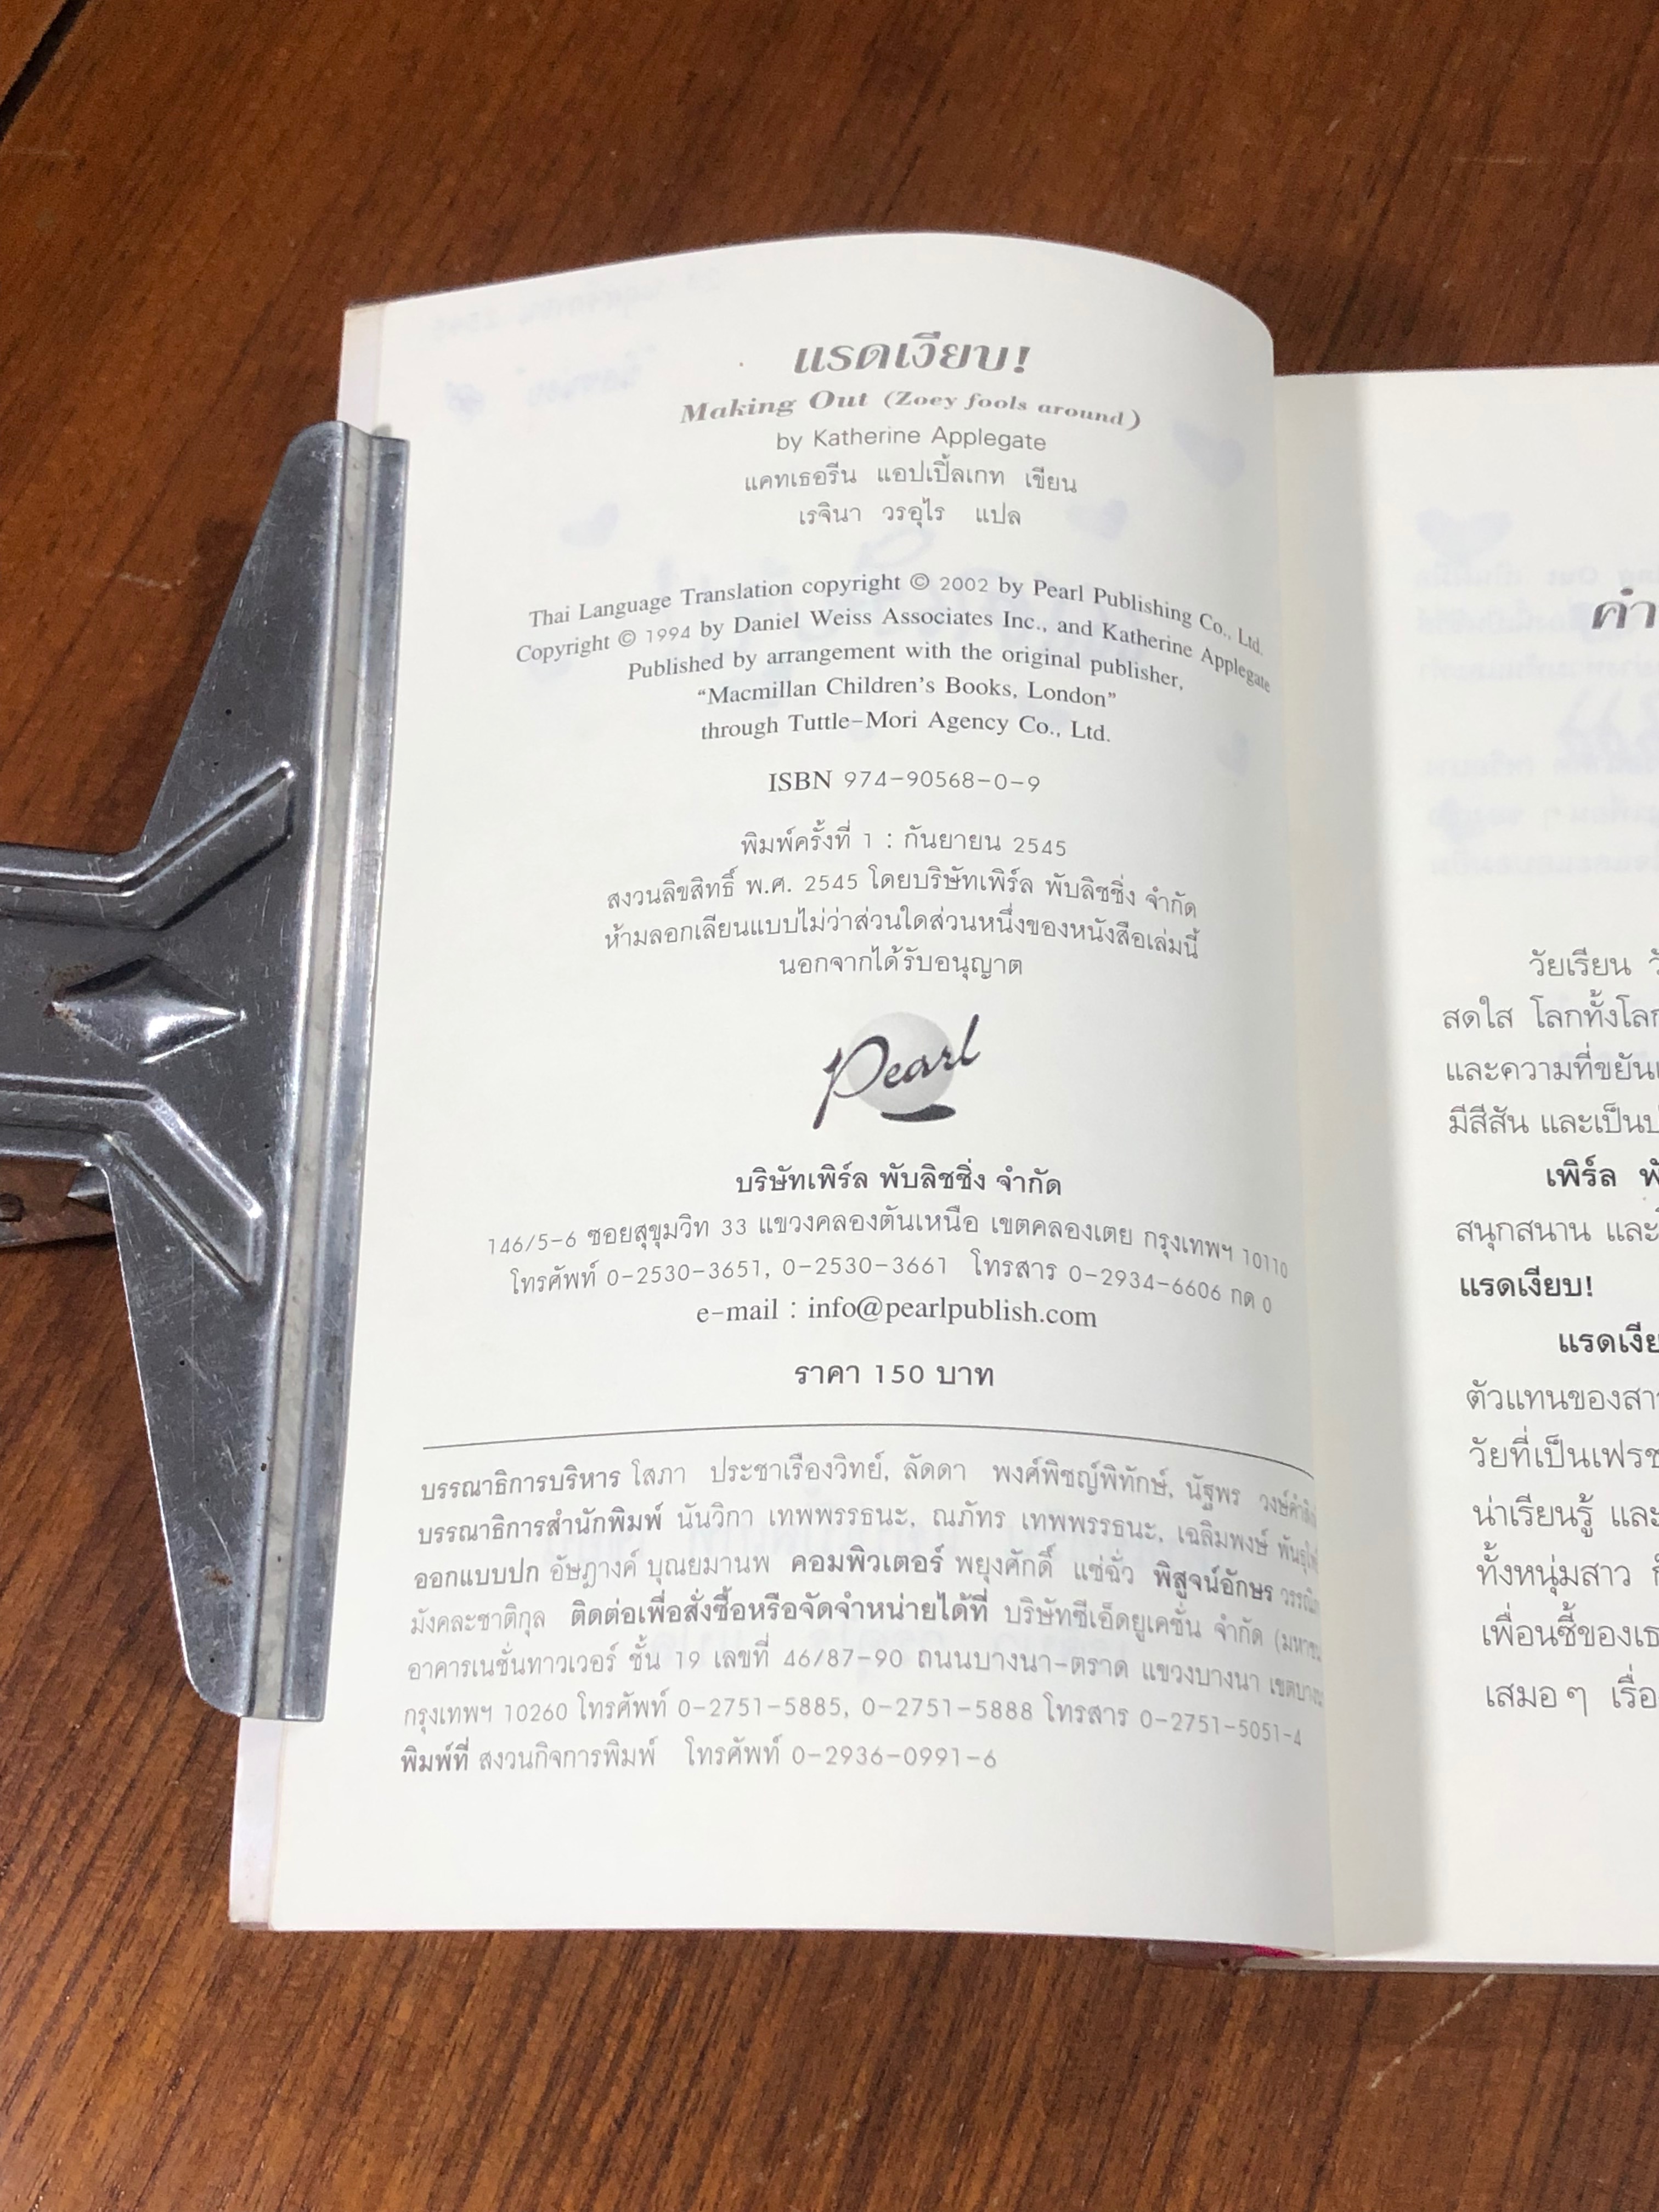 แรดเงียบ!
Making Out (Zoey fools around)
by Katherine Applegate
แคทเธอรีน แอปเปิ้ลเกท เขียน
เรจินา วรอุไร แปล
Thai Language Translation copyright © 2002 by Pearl Publishing Co., Ltd.
Copyright © 1994 by Daniel Weiss Associates Inc., and Katherine Applegate
Published by arrangement with the original publisher,
“Macmillan Children's Books, London”
through Tuttle-Mori Agency Co., Ltd.
ISBN 974-90568-0-9
พิมพ์ครั้งที่ 1 : กันยายน 2545
สงวนลิขสิทธิ์ พ.ศ. 2545 โดยบริษัทเพิร์ล พับลิชชิ่ง จำกัด
ห้ามลอกเลียนแบบไม่ว่าส่วนใดส่วนหนึ่งของหนังสือเล่มนี้
นอกจากได้รับอนุญาต
Pearl
บริษัทเพิร์ล พับลิชชิ่ง จำกัด
146/5-6 ซอยสุขุมวิท 33 แขวงคลองตันเหนือ เขตคลองเตย กรุงเทพฯ 10110
โทรศัพท์ 0-2530-3651, 0-2530-3661 โทรสาร 0-2934-6606 กด 0
e-mail : info@pearlpublish.com
ราคา 150 บาท
บรรณาธิการบริหาร โสภา ประชาเรืองวิทย์, ลัดดา พงศ์พิชญ์พิทักษ์, นัฐพร
บรรณาธิการสำนักพิมพ์ นันวิกา เทพพรรธนะ, ณภัทร เทพพรรธนะ, เฉลิมพงษ์
ออกแบบปก อัษฎางค์ บุณยมานพ คอมพิวเตอร์ พยุงศักดิ์ แซ่ฉั่ว พิสูจน์อักษร
มังคละชาติกุล ติดต่อเพื่อสั่งซื้อหรือจัดจำหน่ายได้ที่ บริษัทซีเอ็ดยูเคชั่น จำกัด
อาคารเนชั่นทาวเวอร์ ชั้น 19 เลขที่ 46/87-90 ถนนบางนา-ตราด แขวงบางนา
กรุงเทพฯ 10260 โทรศัพท์ 0-2751-5885, 0-2751-5888 โทรสาร 0-2751-5051-4
พิมพ์ที่ สงวนกิจการพิมพ์ โทรศัพท์ 0-2936-0991-6
คำ
วัยเรียน
สดใส โลกทั้งโลก
และความที่ขยัน
มีสีสัน และเป็น
เพิร์ล
สนุกสนาน และ
แรดเงียบ!
แรดเงีย
ตัวแทนของ
วัยที่เป็น
น่าเรียนรู้ และ
ทั้งหนุ่มสาว
เพื่อนซี้ของ
เสมอๆ